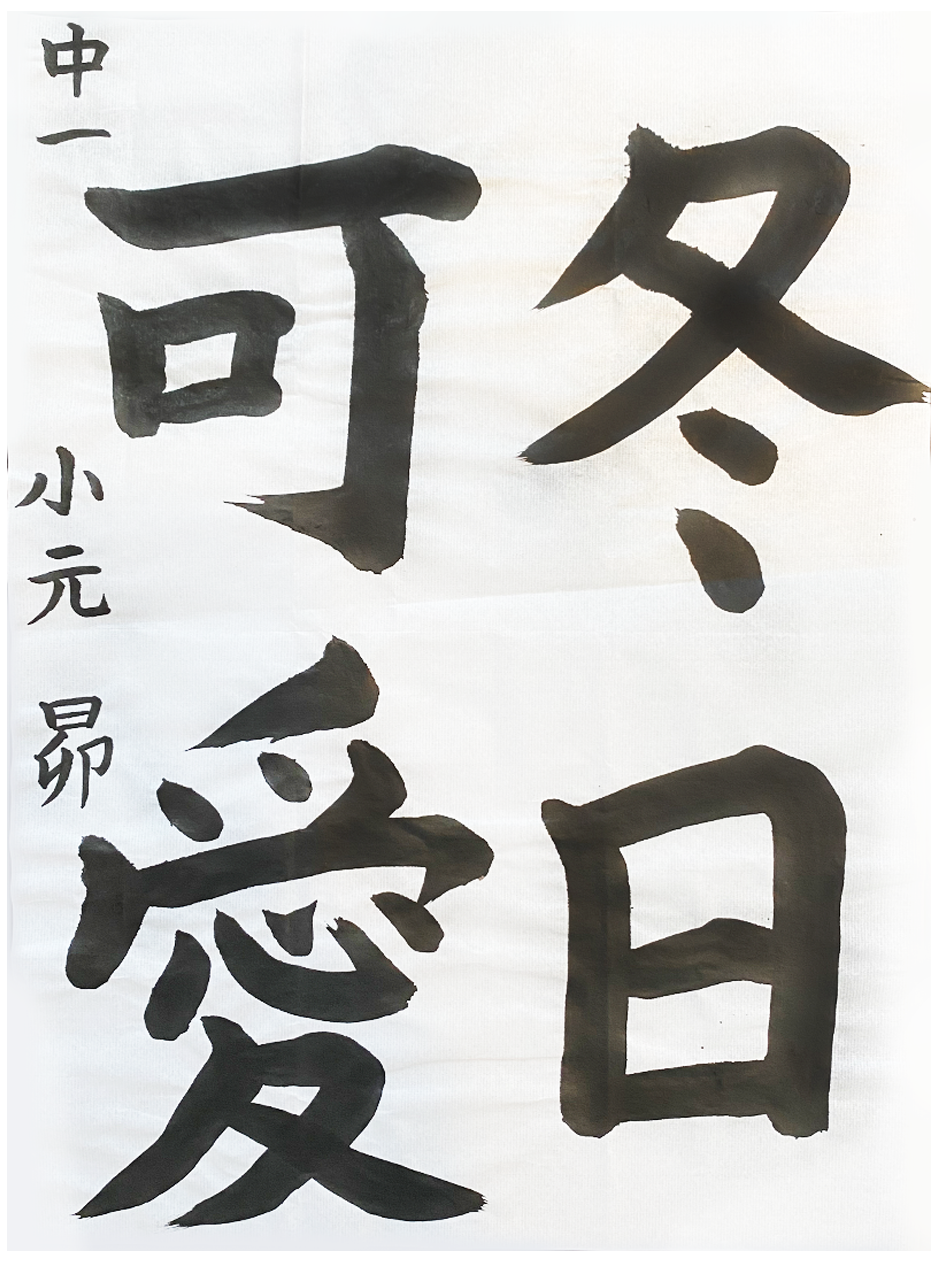 冬日
可愛
中一 小元 昴